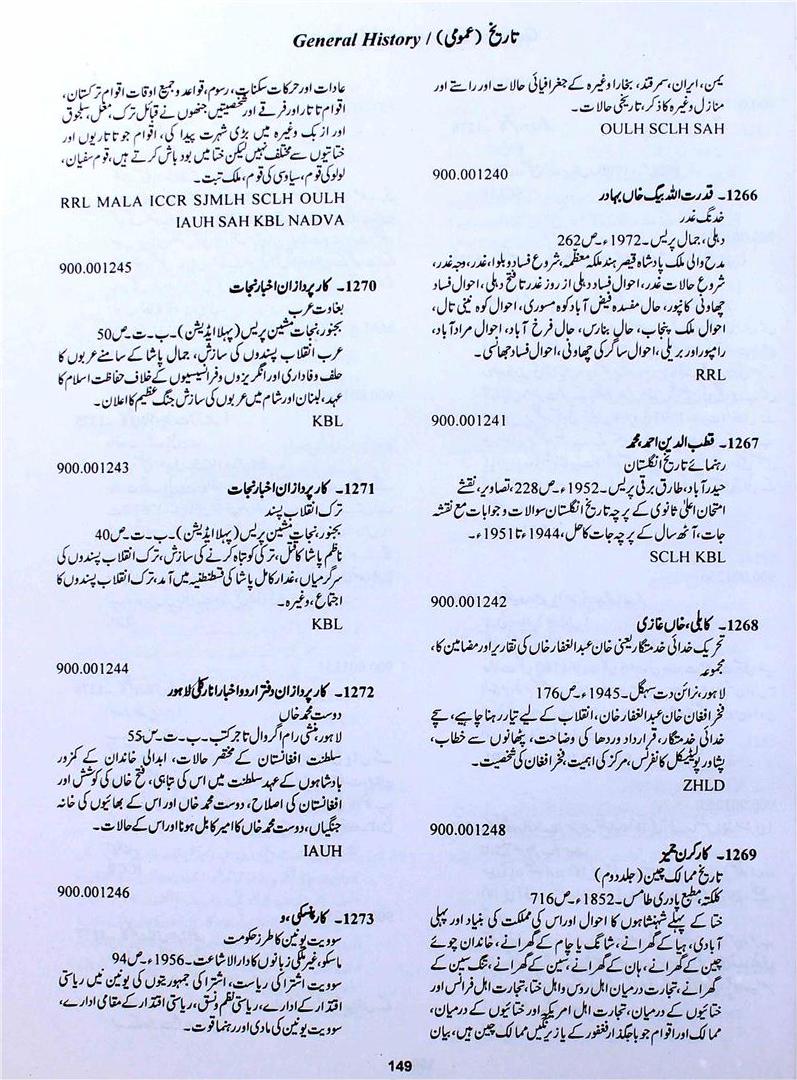 General History / تاریخ (عمومی)
یمن، ایران، سمرقند، بخارا وغیرہ کے جغرافیائی حالات اور راستے اور
منازل وغیرہ کا ذکر، تاریخی حالات۔
OULH SCLH SAH
900.001240
1266۔ قدرت اللہ بیگ خاں بہادر
خدنگ غدر
دہلی، جمال پریس۔ 1972ء۔ ص262
مدح والی ملک پادشاہ قیصر ہند ملکہ معظمہ، شروع فساد و بلوا، غدر، وجہ غدر،
شروع حالات غدر، احوال فساد دہلی از روز غدر تا فتح دہلی، احوال فساد
چھاونی کانپور، حال مفسدہ فیض آباد کوہ مسوری، احوال کوہ نینی تال،
احوال ملک پنجاب، حال بنارس، حال فرخ آباد، احوال مرادآباد،
رامپور اور بریلی، احوال ساگر کی چھاونی، احوال فساد جھانسی۔
RRL
900.001241
1267۔ قطب الدین احمد، محمد
رہنمائے تاریخ انگلستان
حیدرآباد، طارق برقی پریس۔ 1952ء۔ ص228، تصاویر، نقشے
امتحان اعلیٰ ثانوی کے پرچہ تاریخ انگلستان سوالات و جوابات مع نقشہ
جات، آٹھ سال کے پرچہ جات کا حل، 1944ء تا 1951ء۔
SCLH KBL
900.001242
1268۔ کابلی، خاں غازی
تحریک خدائی خدمتگار یعنی خان عبدالغفار خاں کی تقاریر اور مضامین کا،
مجموعہ
لاہور، نرائن دت سہگل۔ 1945ء۔ ص176
فخر افغان خان عبدالغفار خان، انقلاب کے لیے تیار رہنا چاہیے، سچے
خدائی خدمتگار، قرارداد وردھا کی وضاحت، پٹھانوں سے خطاب،
پشاور پولیٹیکل کانفرنس، مرکز کی اہمیت، فخر افغان کی شخصیت۔
ZHLD
900.001248
1269۔ کارکرن جمیز
تاریخ ممالک چین (جلد دوم)
کلکتہ، مطبع پادری طامس۔ 1852ء۔ ص716
ختا کے پہلے شہنشاہوں کا احوال اور اس کی مملکت کی بنیاد اور پہلی
آبادی، ہیا کے گھرانے، شانگ یا چام کے گھرانے، خاندان چوئے
چین کے گھرانے، ہان کے گھرانے، سین کے گھرانے، تنگ سین کے
گھرانے، تجارت درمیان اہل روس و اہل ختا، تجارت اہل فرانس اور
ختائیوں کے درمیان، تجارت اہل امریکہ اور ختائیوں کے درمیان،
ممالک اور اقوام جو باجگذار فغفور کے یا زیر نگیں ممالک چین ہیں، بیان
عادات اور حرکات سکنات، رسوم، قواعد و جمیع اوقات اقوام ترکستان،
اقوام تاتار اور فرقے اور شخصیتیں جنھوں نے قبائل ترک، مغل، سلجوق
اور ازبک وغیرہ میں بڑی شہرت پیدا کی، اقوام جو تاتاریوں اور
ختائیوں سے مختلف نہیں لیکن ختا میں بود باش کرتے ہیں، قوم سفیان،
لولو کی قوم، سیاوسی کی قوم، ملک تبت۔
RRL MALA ICCR SJMLH SCLH OULH
IAUH SAH KBL NADVA
900.001245
1270۔ کارپردازان اخبار نجات
بغاوت عرب
بجنور، نجات مشین پریس (پہلا ایڈیشن)۔ ب۔ت۔ ص50
عرب انقلاب پسندوں کی سازش، جمال پاشا کے سامنے عربوں کا
حلف وفاداری اور انگریزوں و فرانسیسیوں کے خلاف حفاظت اسلام کا
عہد، لبنان اور شام میں عربوں کی سازش جنگ عظیم کا اعلان۔
KBL
900.001243
1271۔ کارپردازان اخبار نجات
ترک انقلاب پسند
بجنور، نجات مشین پریس (پہلا ایڈیشن)۔ ب۔ت۔ ص40
ناظم پاشا کا قتل، ترکی کو تباہ کرنے کی سازش، ترک انقلاب پسندوں کی
سرگرمیاں، غدار کامل پاشا کی قسطنطنیہ میں آمد، ترک انقلاب پسندوں کا
اجتماع، وغیرہ۔
KBL
900.001244
1272۔ کارپردازان دفتر اردو اخبار انارکلی لاہور
دوست محمد خاں
لاہور، منشی رام اگروال تاجر کتب۔ ب۔ت۔ ص55
سلطنت افغانستان کے مختصر حالات، ابدالی خاندان کے کمزور
بادشاہوں کے عہد سلطنت میں اس کی تباہی، فتح خاں کی کوشش اور
افغانستان کی اصلاح، دوست محمد خاں اور اس کے بھائیوں کی خانہ
جنگیاں، دوست محمد خاں کا امیر کابل ہونا اور اس کے حالات۔
IAUH
900.001246
1273۔ کارپنسکی، و
سوویت یونین کا طرز حکومت
ماسکو، غیر ملکی زبانوں کا دارالاشاعت۔ 1956ء۔ ص94
سوویت اشتراکی ریاست، اشتراکی جمہوریتوں کی یونین میں ریاستی
اقتدار کے ادارے، ریاستی نظم و نسق، ریاستی اقتدار کے مقامی ادارے،
سوویت یونین کی مادی اور رہنما قوت۔
149